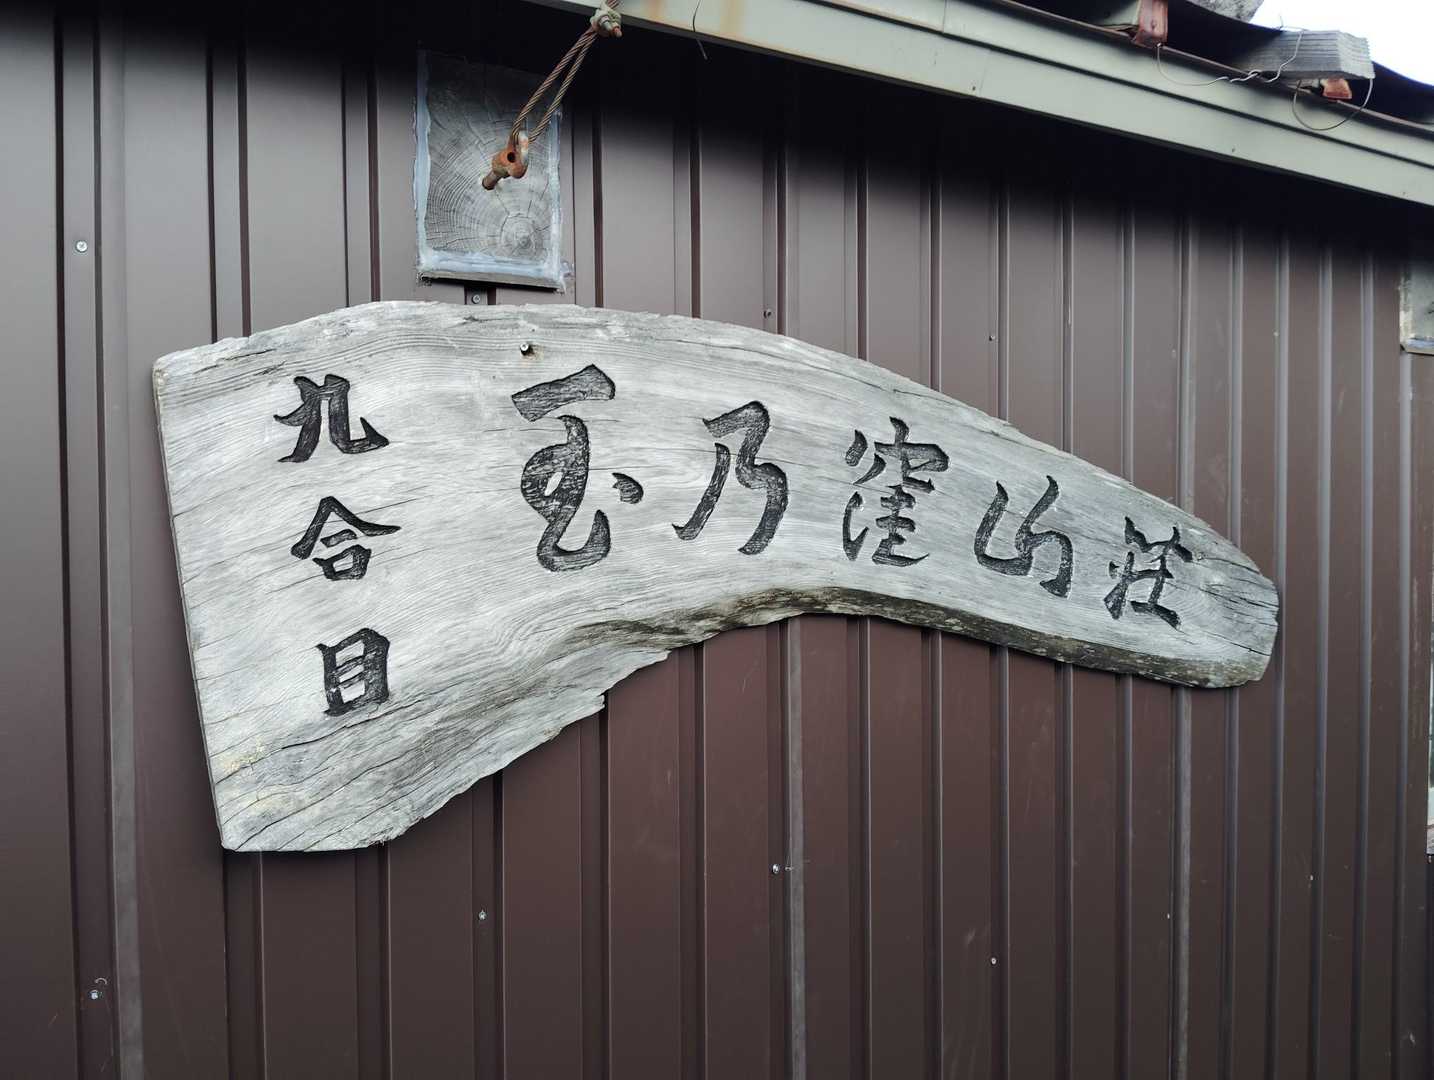 九合目
玉乃窪山荘